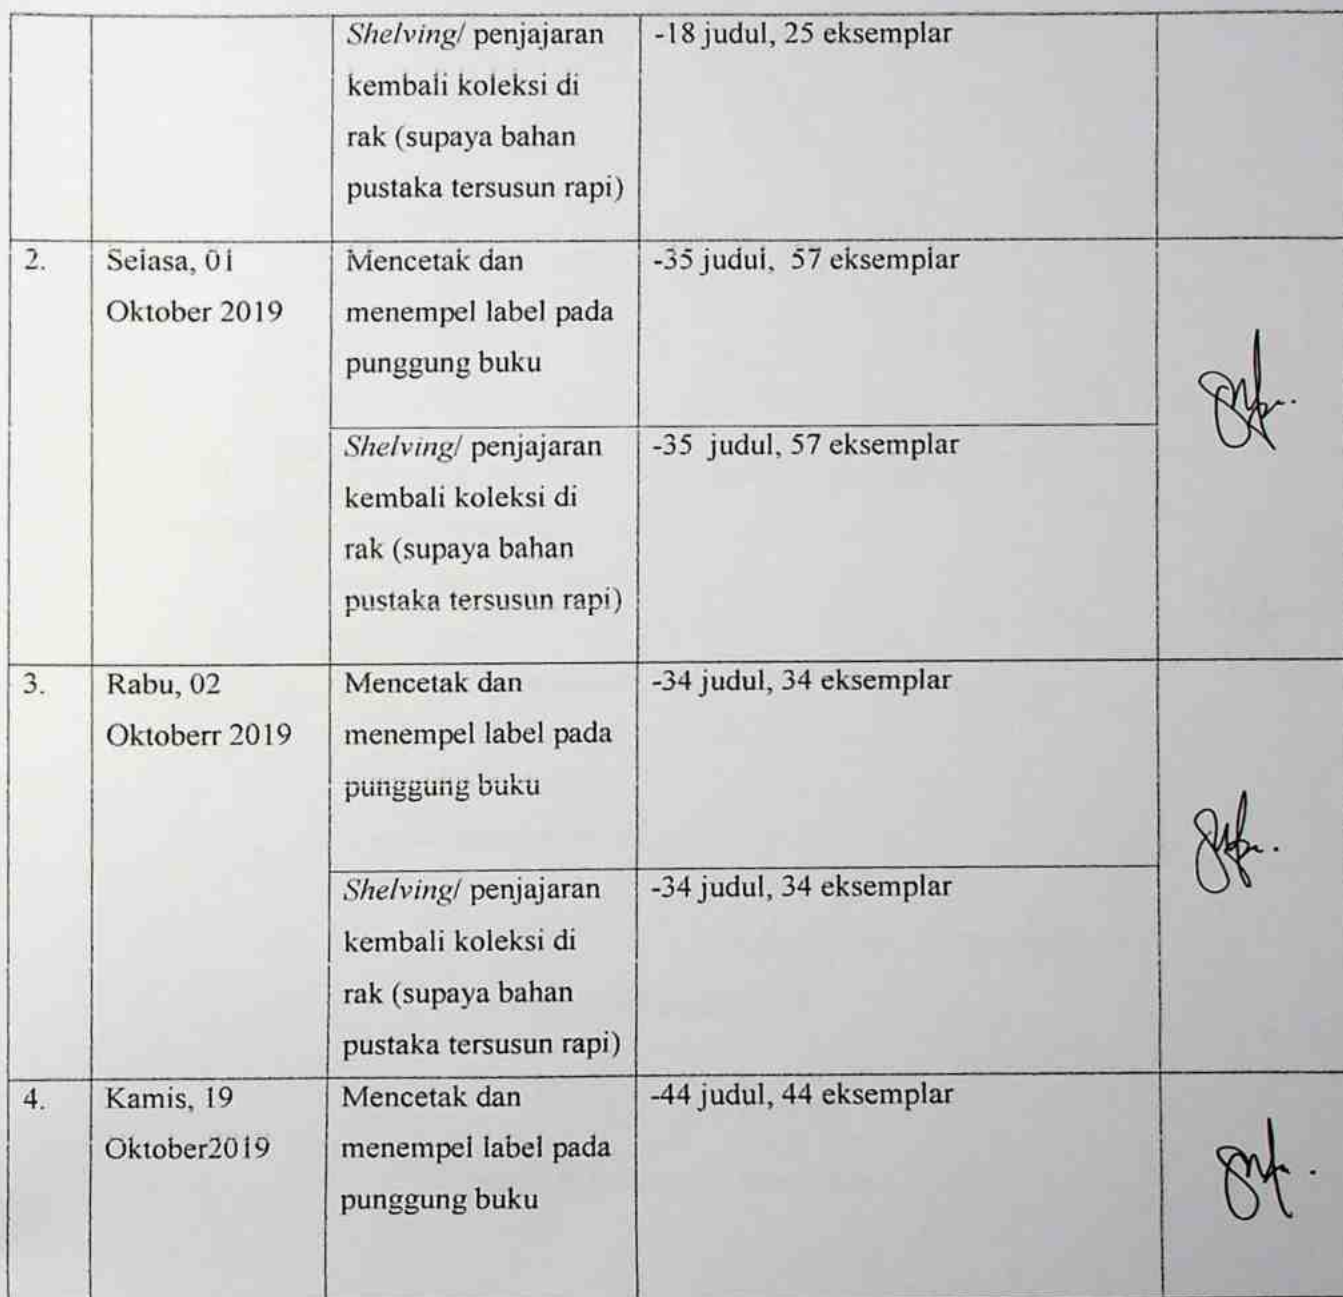 Shelving/ penjajaran
kembali koleksi di
rak (supaya bahan
pustaka tersusun rapi)
-18 judul, 25 eksemplar
2.
Selasa, 01
Oktober 2019
Mencetak dan
menempel label pada
punggung buku
-35 judul, 57 eksemplar
Shelving/ penjajaran
kembali koleksi di
rak (supaya bahan
pustaka tersusun rapi)
-35 judul, 57 eksemplar
3.
Rabu, 02
Oktoberr 2019
Mencetak dan
menempel label pada
punggung buku
-34 judul, 34 eksemplar
Shelving/ penjajaran
kembali koleksi di
rak (supaya bahan
pustaka tersusun rapi)
-34 judul, 34 eksemplar
4.
Kamis, 19
Oktober2019
Mencetak dan
menempel label pada
punggung buku
-44 judul, 44 eksemplar